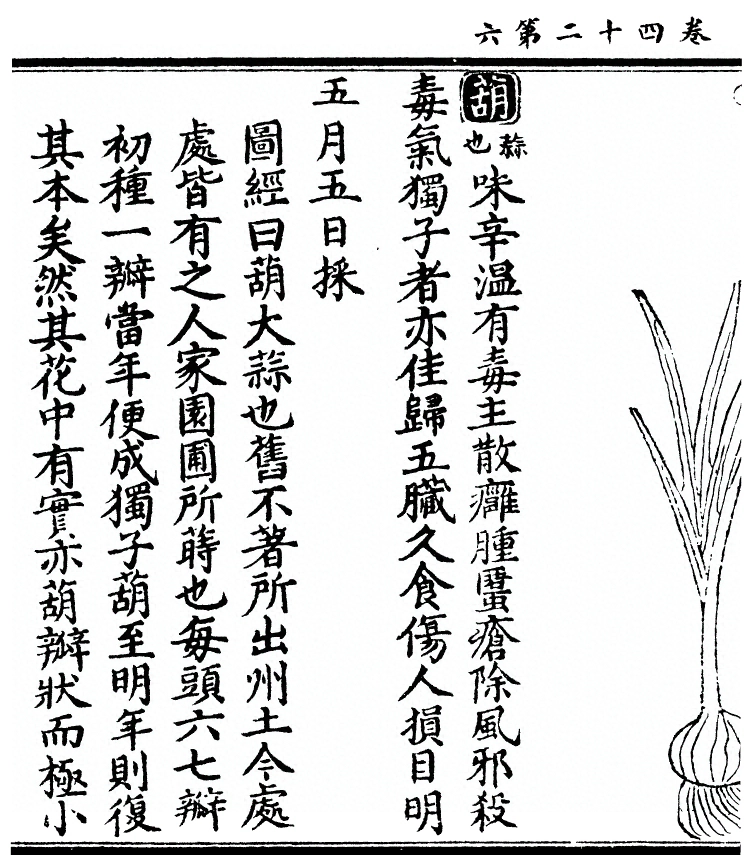 卷四十二第六
葫蒜也味辛溫有毒主散癰腫䘌瘡除風邪殺
毒氣獨子者亦佳歸五臟久食傷人損目明
五月五日採
圖經曰葫大蒜也舊不著所出州土今處
處皆有之人家園圃所蒔也每頭六七瓣
初種一瓣當年便成獨子葫至明年則復
其本矣然其花中有實亦葫瓣狀而極小